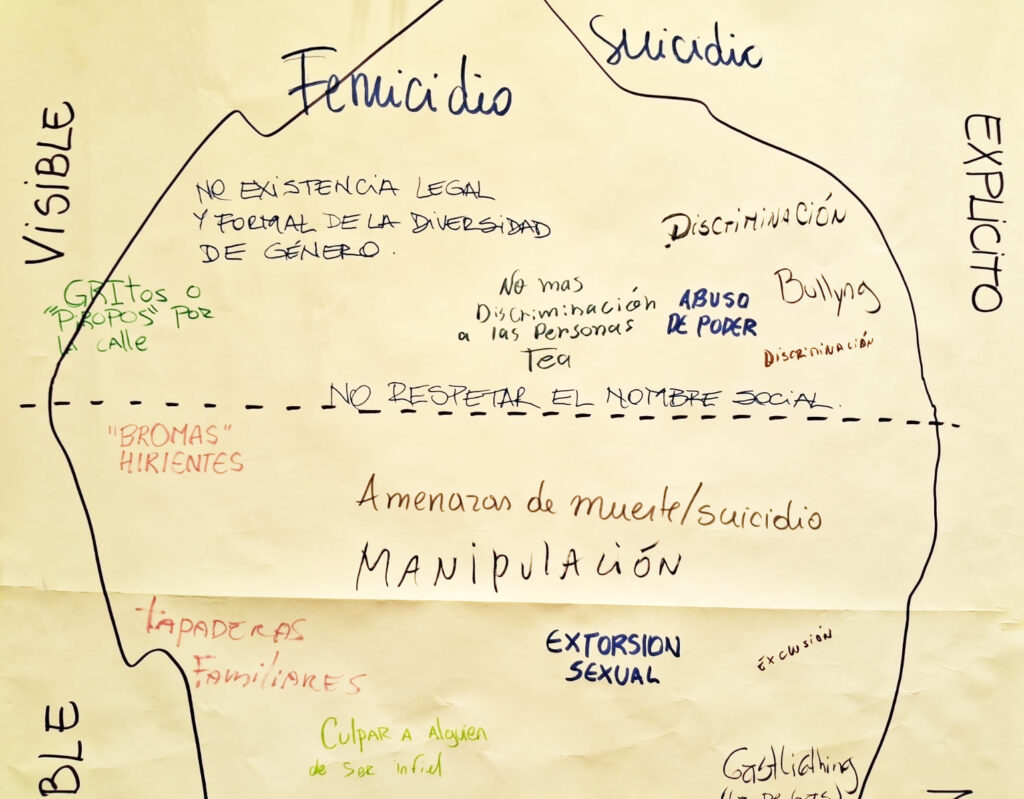 Suicidio
Femicidio
VISIBLE
EXPLICITO
NO EXISTENCIA LEGAL
Y FORMAL DE LA DIVERSIDAD
DE GÉNERO.
DISCRIMINACIÓN
GRITos o
"PiROPOS" POR
LA CALLE
No mas
Discriminación
a las Personas
Tea
ABUSO
DE PODER
Bullyng
DISCRIMINACIÓN
NO RESPETAR EL NOMBRE SOCIAL.
"BROMAS"
HIRIENTES
Amenazas de muerte/suicidio
MANIPULACIÓN
TAPADERAS
FAMILIARES
EXTORSION
SEXUAL
EXCLUSIÓN
Culpar a Alguien
de Ser infiel
BLE
Gastliathing